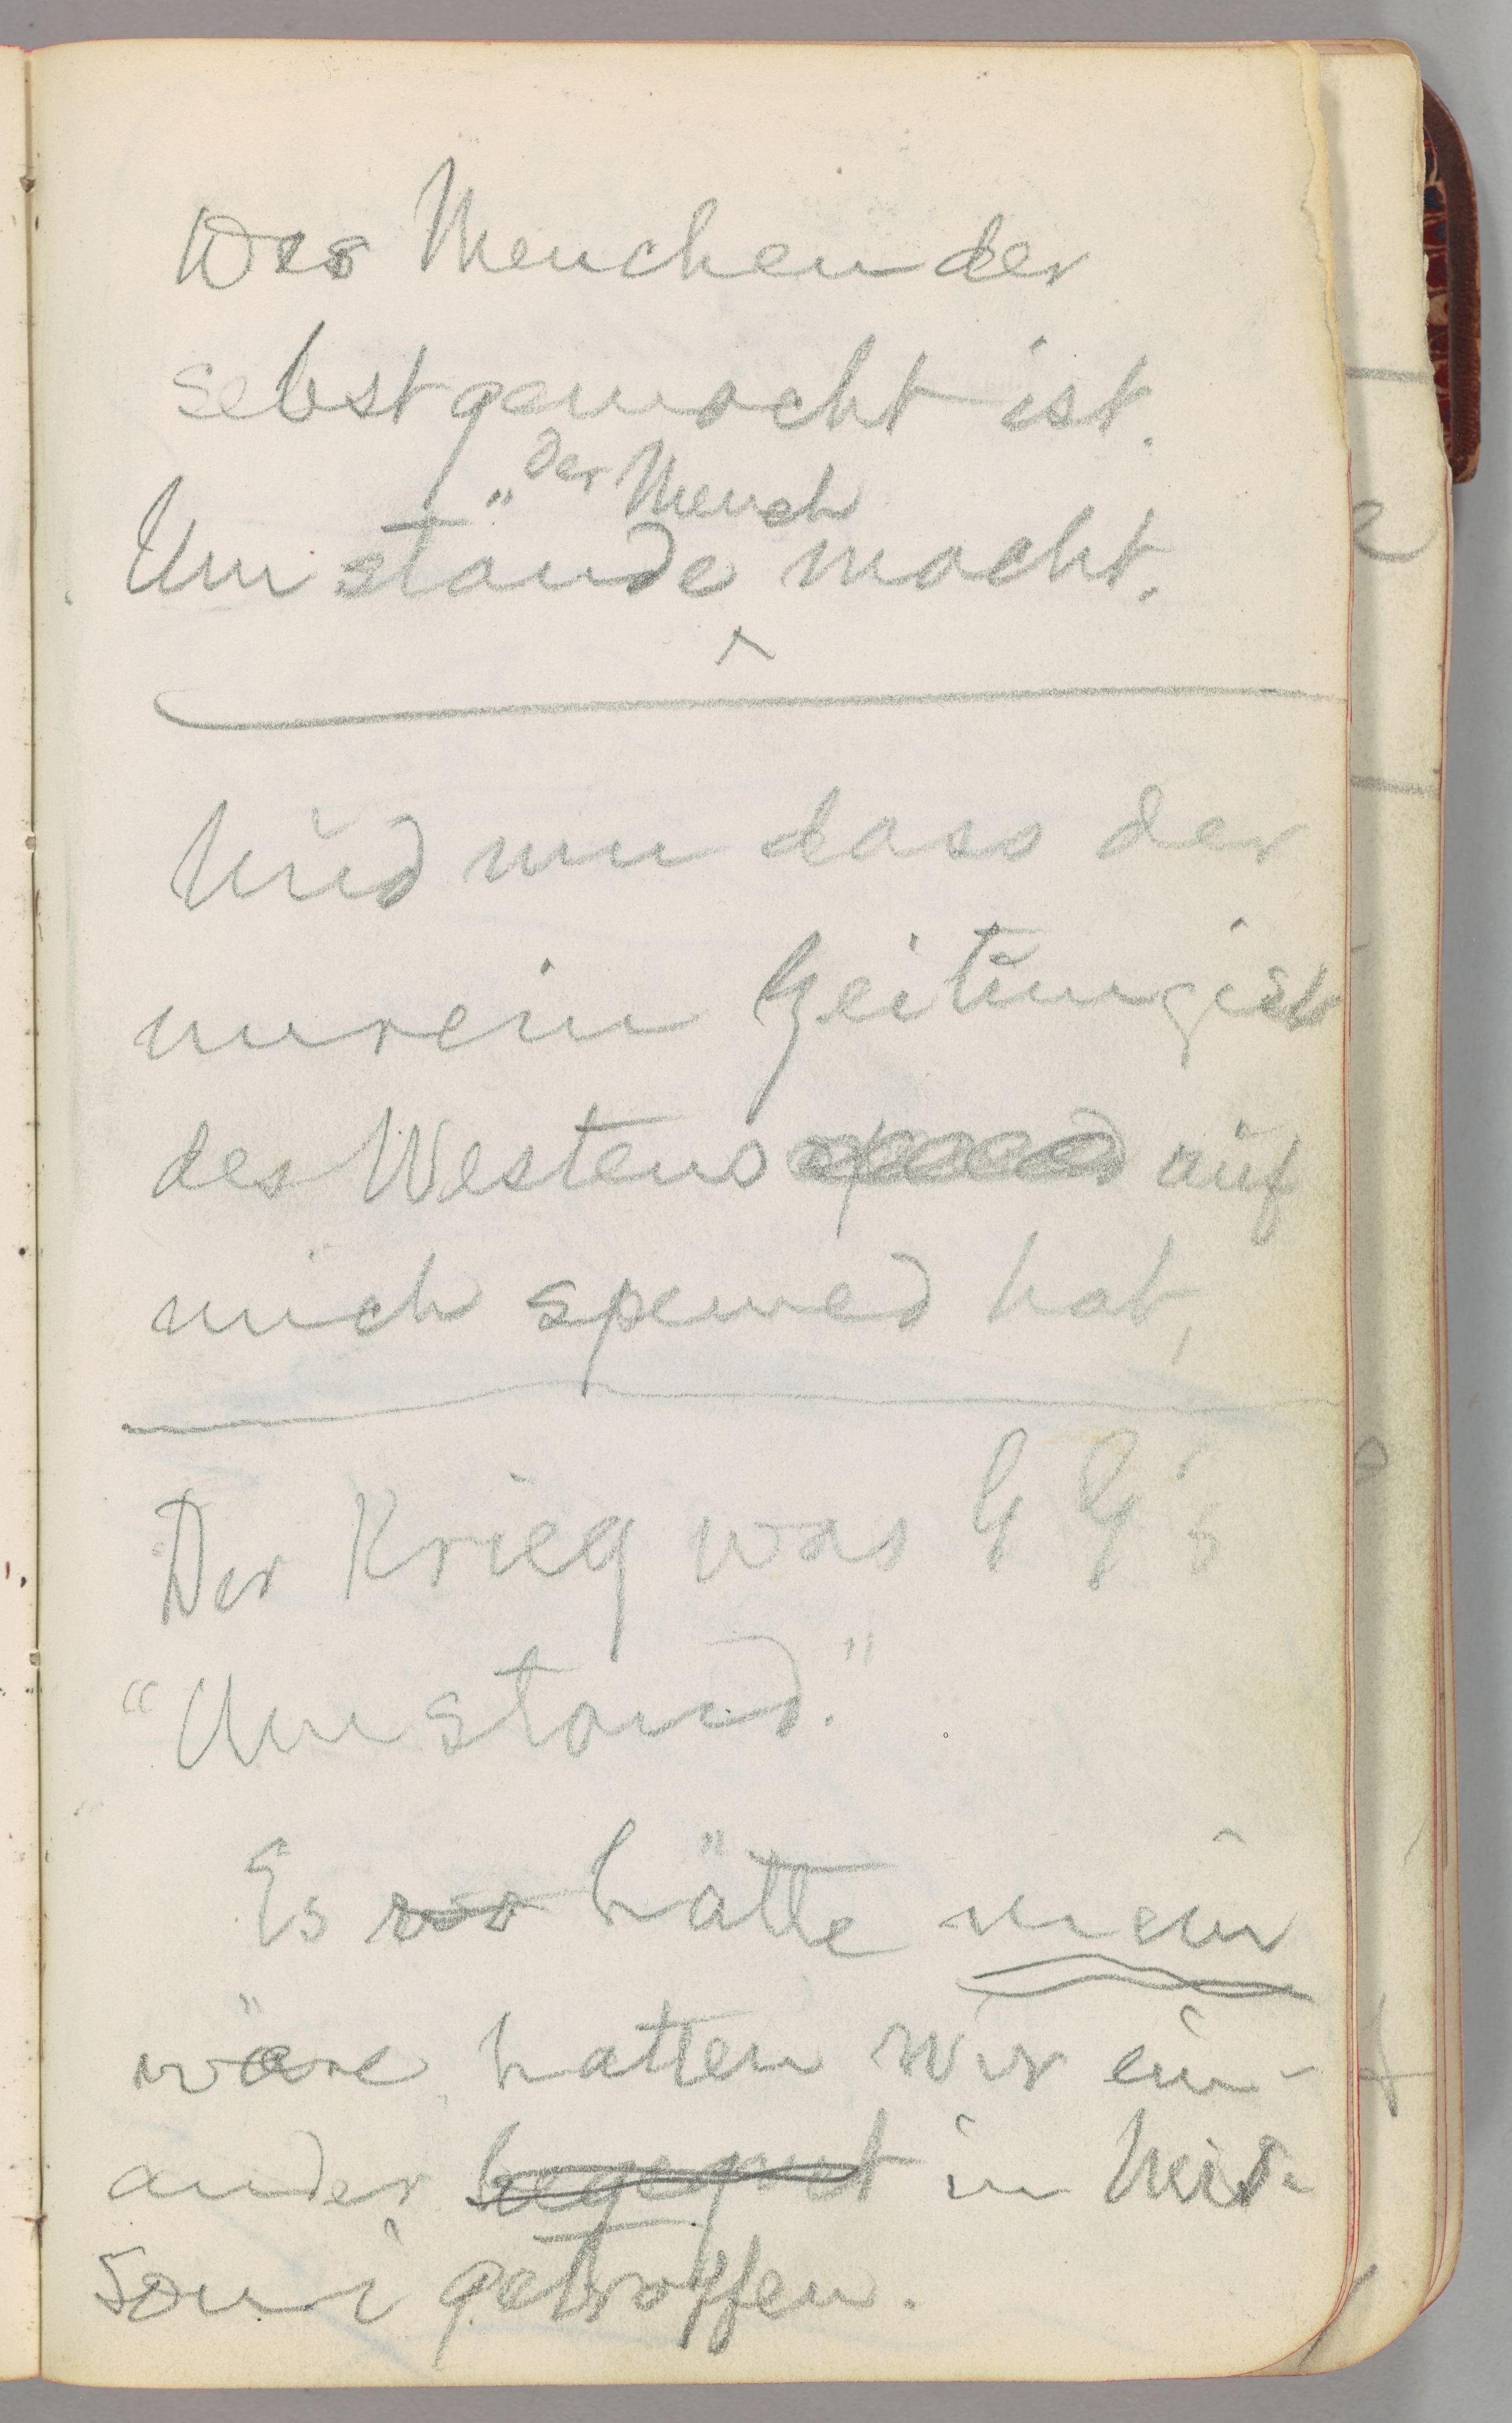 Was Menchen der
sebst gemacht ist.
der Mench
Umstände macht.
Und nun dass der
nurein Zeitungist
des Westens auf
mich spewed hat,
Der Krieg was G G's
"Umstand."
Es war hätte mein
wäre, hatten wir ein-
ander begegnet in
getroffen.